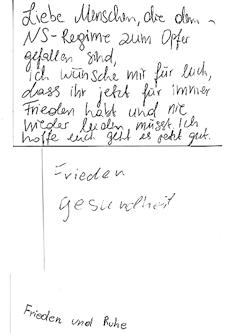 Liebe Menschen, die dem
NS-Regime zum Opfer
gefallen sind,
ich wünsche mir für euch,
dass ihr jetzt für immer
Frieden habt und nie
wieder leiden müsst. Ich
hoffe euch geht es jetzt gut.
Frieden
gesundheit
Frieden und Ruhe